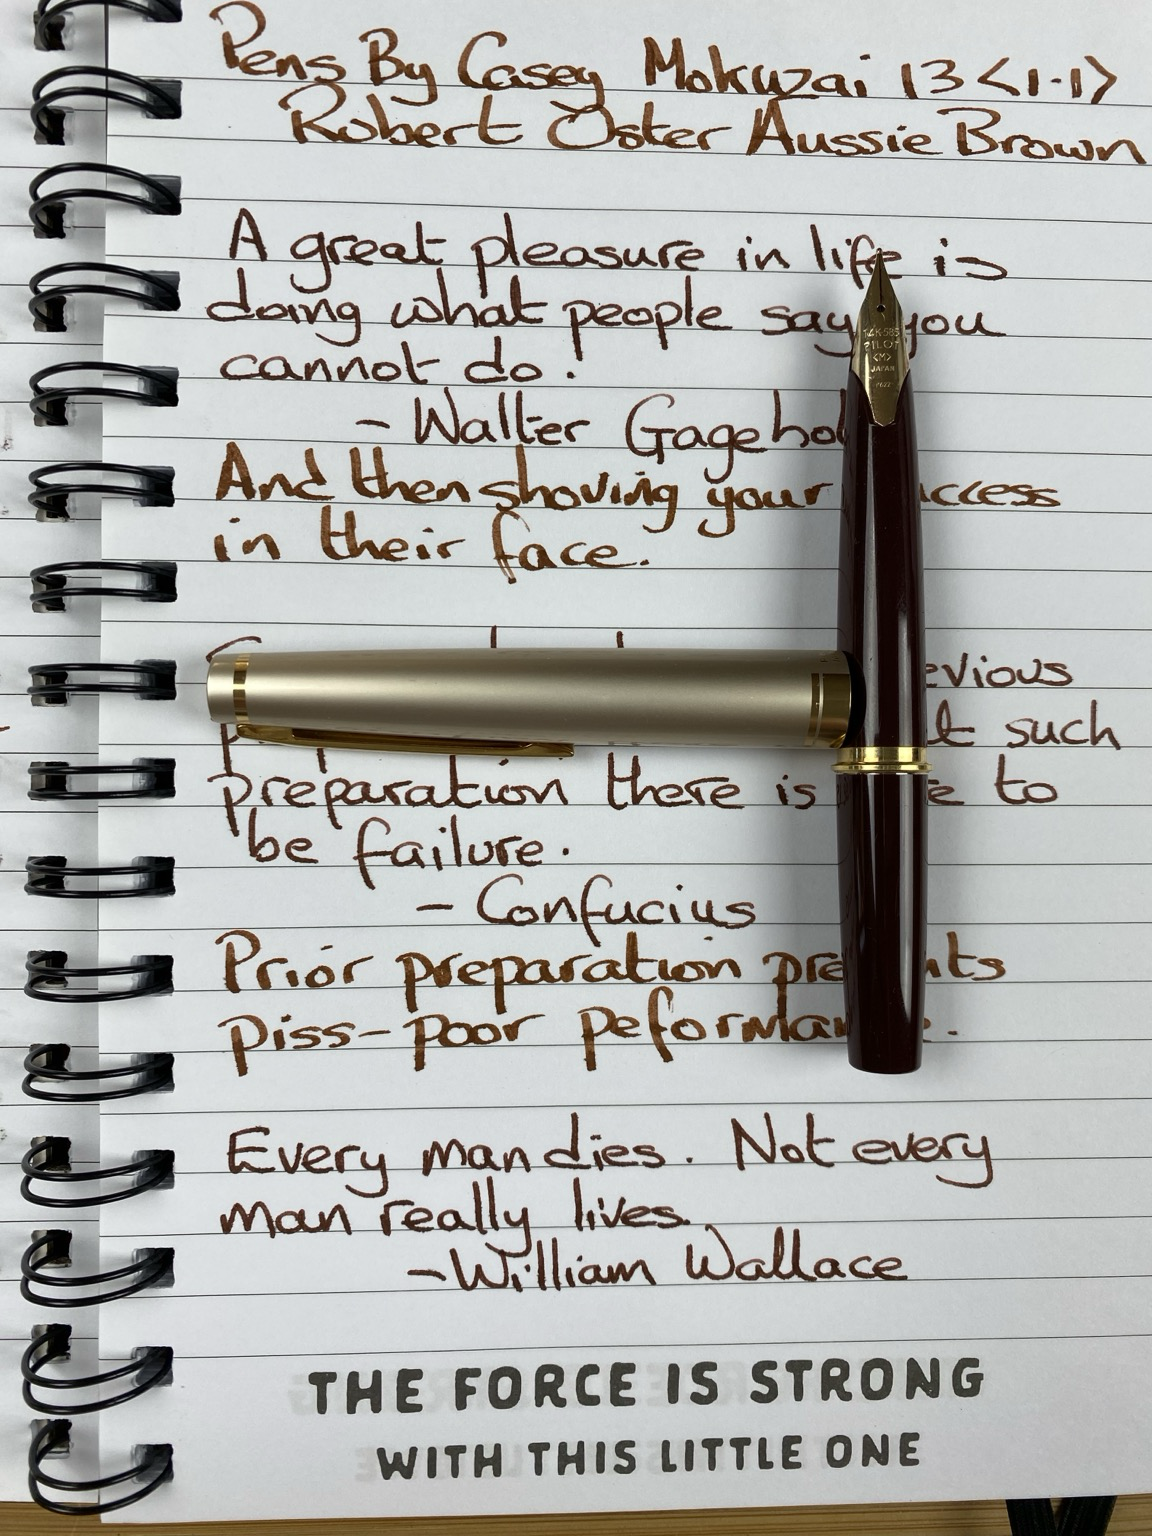 Pens By Casey Mokuzai 13 <1.1>
Robert Oster Aussie Brown
A great pleasure in life is
doing what people say you
cannot do.
- Walter Gageho
And then shoving your
in their face.
evious
such
preparation there is to
be failure.
- Confucius
Prior preparation
piss-poor
Every man dies. Not every
man really lives.
- William Wallace
THE FORCE IS STRONG
WITH THIS LITTLE ONE
14K585
PILOT
<M>
JAPAN